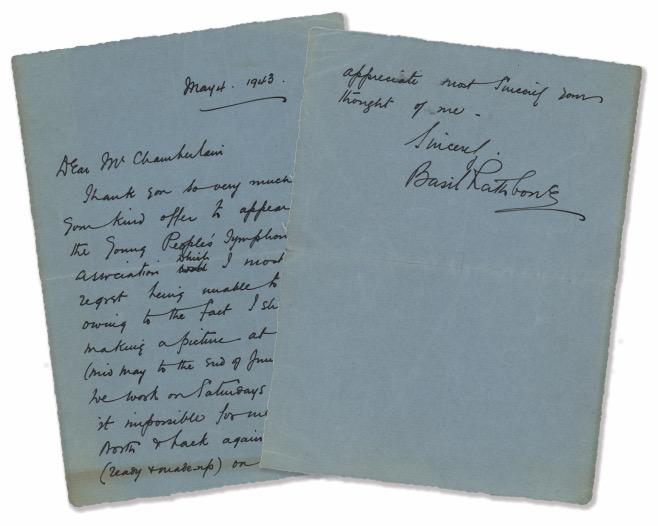 May 4. 1943.
Dear Mr Chamberlain
Thank you so very much
your kind offer to appear
the Young People's Symphon
Association which I most
regret being unable to
owing to the fact I sh
making a picture at
(mid may to the end of June
We work on Saturdays
it impossible for me
North & back again
(ready & made-up) on
appreciate most sincerely your
thought of me -
Sincerely.
Basil Rathbone